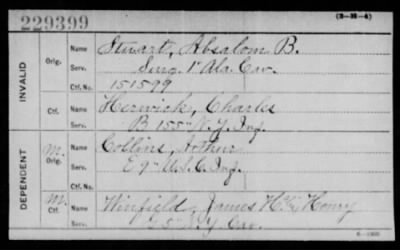 229399
(3-25-4)
INVALID
Orig. Name Stewart, Absalom B.
Serv. Surg. 1" Ala. Cav.
Ctf. No. 151599
Ctf. Name Herwick, Charles
Serv. B 155" N.Y. Inf.
DEPENDENT
M. Orig. Name Collins, Arthur
Serv. E 9" U.S.C. Inf.
M. Ctf. Name Winfield, James H. Henry
Serv. G 5" N.Y. Cav.